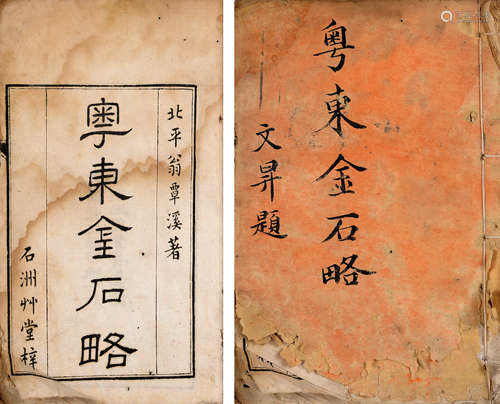 北平翁覃溪著
粤東金石略
石洲艸堂梓
粤東金石略
文昇題